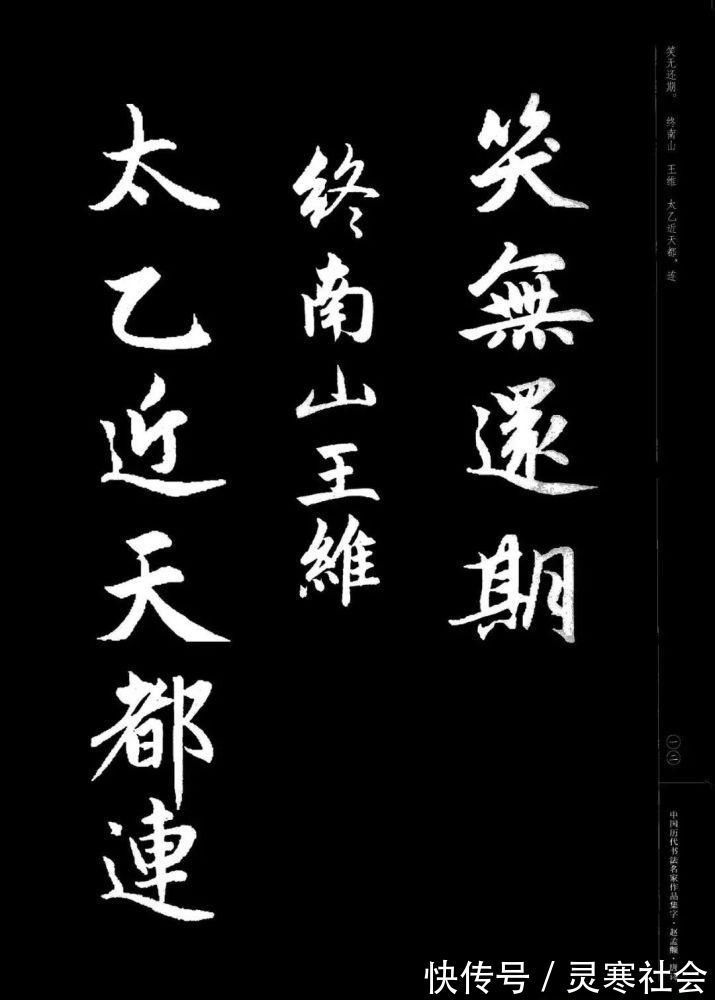 笑无还期。 终南山 王维 太乙近天都，连
笑無還期
終南山王維
太乙近天都連
一二
中国历代书法名家作品集字·赵孟頫·唐
快传号／灵寒社会